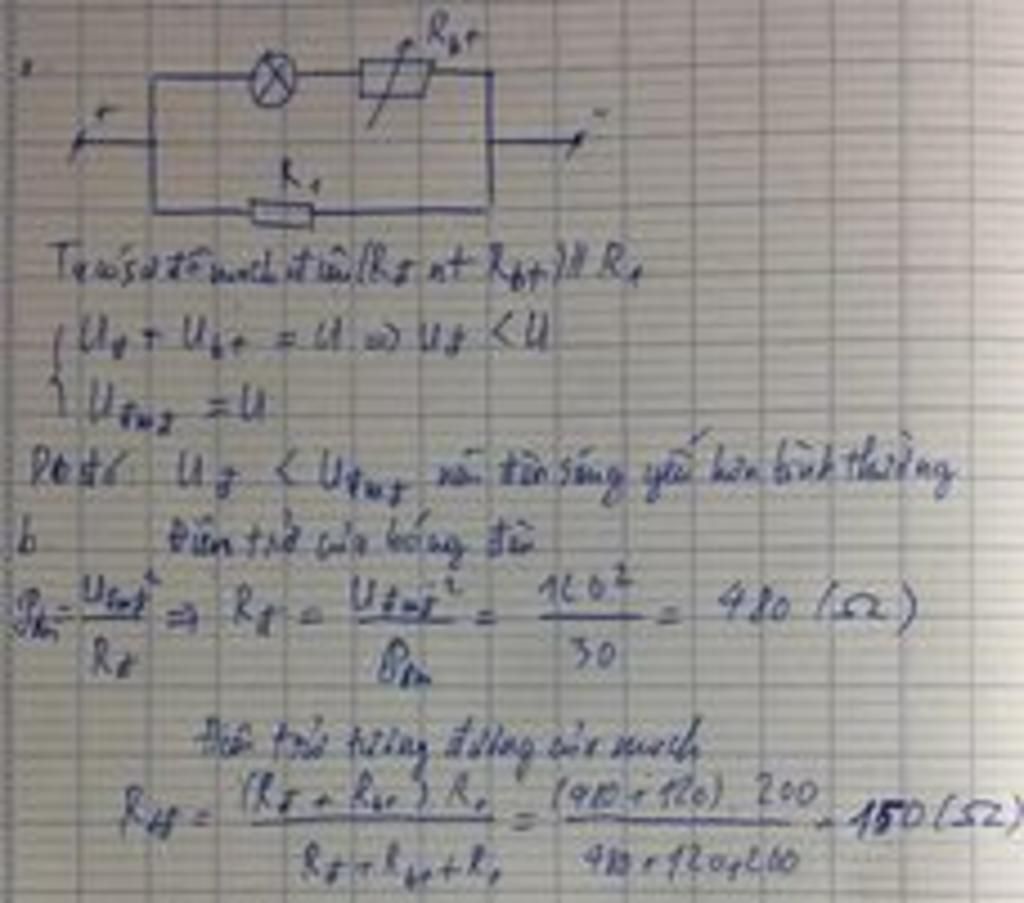 R_bt
+ -
R_1
Ta có sơ đồ mạch điện (R_đ nt R_bt) // R_1
U_đ + U_bt = U => U_đ < U
U_đmđ = U
Do đó U_đ < U_đmđ nên đèn sáng yếu hơn bình thường
b Điện trở của bóng đèn
P_đm = U_đmđ² / R_đ => R_đ = U_đmđ² / P_đm = 120² / 30 = 480 (Ω)
Điện trở tương đương của mạch
R_tđ = (R_đ + R_bt) R_1 / R_đ + R_bt + R_1 = (480 + 120) 200 / 480 + 120 + 200 = 150 (Ω)